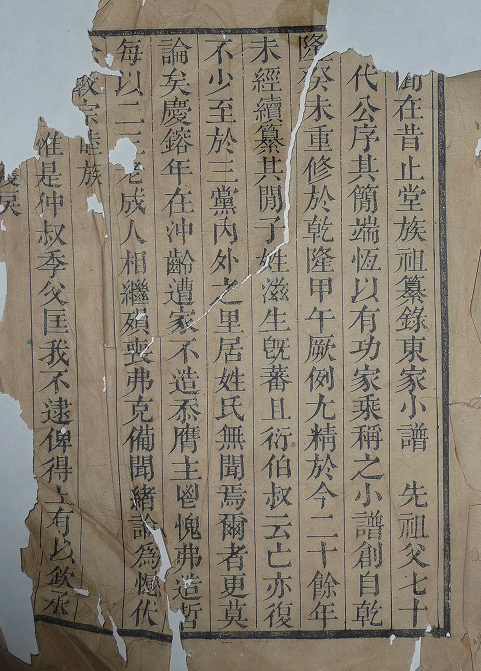 聞在昔止堂族祖纂錄東家小譜　先祖父七十
代公序其簡端恆以有功家乘稱之小譜創自乾
隆癸未重修於乾隆甲午厥例尤精於今二十餘年
未經續纂其閒子姓滋生旣蕃且衍伯叔云亡亦復
不少至於三黨內外之里居姓氏無聞焉爾者更莫
論矣慶鎔年在沖齡遭家不造忝膺主鬯愧弗造哲
每以二三老成人相繼殞喪弗克備聞緒論為憾伏
敎宗睦族
惟是仲叔季父匡我不逮俾得上有以欽承